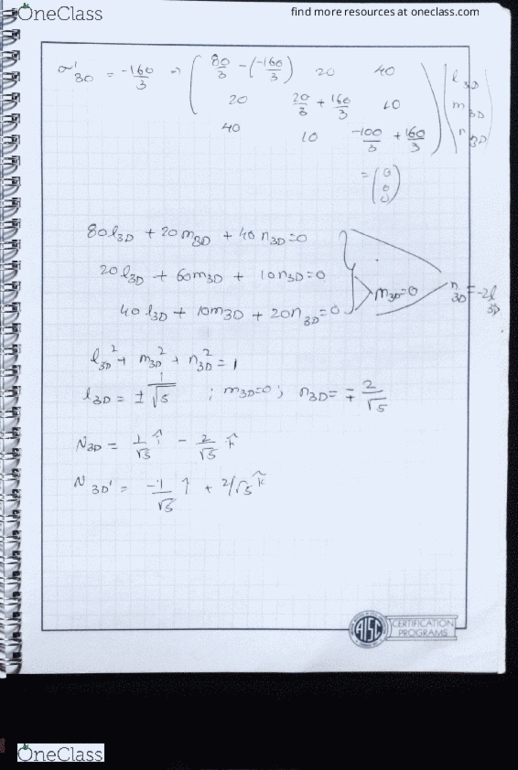 OneClass
find more resources at oneclass.com
σ'3D = -160/3 → ( 80/3 - (-160/3) 20 40 ) ( l3D )
20 20/3 + 160/3 10 m3D
40 10 -100/3 + 160/3 n3D
= ( 0 0 0 )
80l3D + 20m3D + 40n3D = 0
20l3D + 60m3D + 10n3D = 0
m3D = 0
n3D = -2l3D
40l3D + 10m3D + 20n3D = 0
l3D² + m3D² + n3D² = 1
l3D = ± 1/√5 ; m3D = 0 ; n3D = ∓ 2/√5
N3D = 1/√5 î - 2/√5 k̂
N3D' = -1/√5 î + 2/√5 k̂
AISC CERTIFICATION PROGRAMS
OneClass